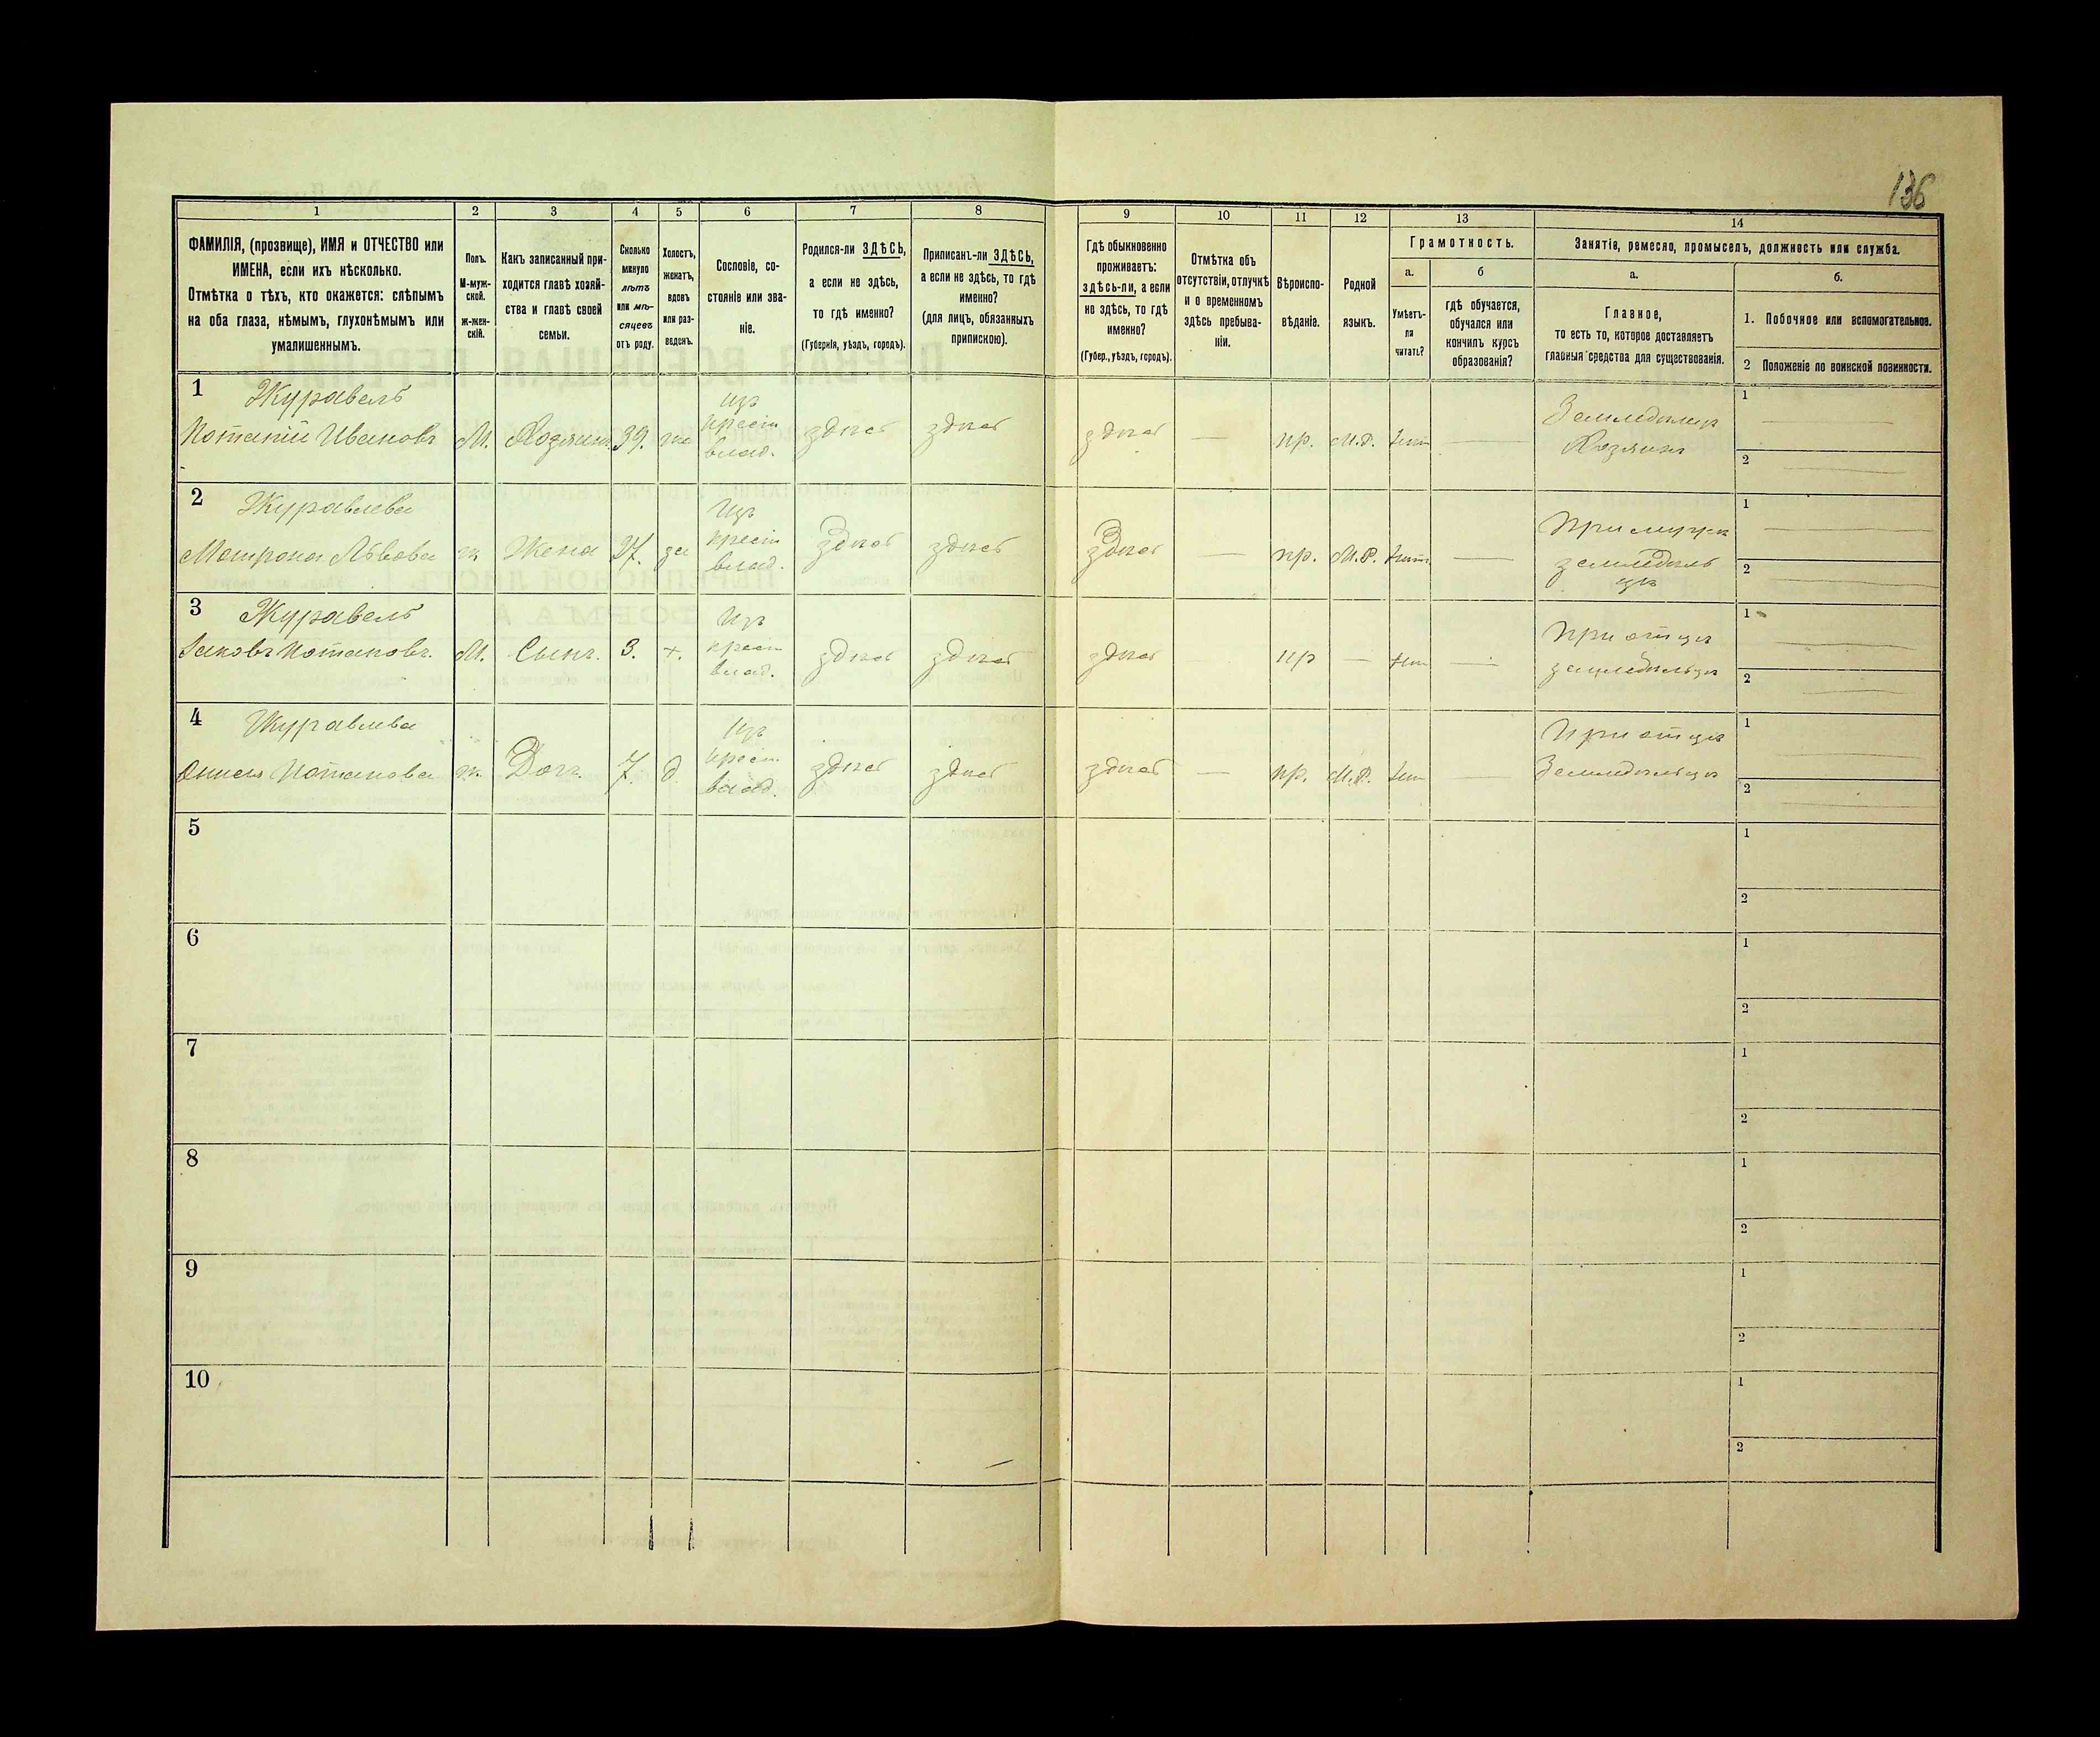 136
1 2 3 4 5 6 7 8 9 10 11 12 13 14
ФАМИЛІЯ, (прозвище), ИМЯ и ОТЧЕСТВО или
ИМЕНА, если ихъ нѣсколько.
Отмѣтка о тѣхъ, кто окажется: слѣпымъ
на оба глаза, нѣмымъ, глухонѣмымъ или
умалишеннымъ.
Полъ.
М-муж-
ской.
ж-жен-
скій.
Какъ записанный при-
ходится главѣ хозяй-
ства и главѣ своей
семьи.
Сколько
минуло
лѣтъ
или мѣ-
сяцевъ
отъ роду.
Холостъ,
женатъ,
вдовъ
или раз-
веденъ.
Сословіе, со-
стояніе или зва-
ніе.
Родился-ли ЗДѢСЬ,
а если не здѣсь,
то гдѣ именно?
(Губернія, уѣздъ, городъ).
Приписанъ-ли ЗДѢСЬ,
а если не здѣсь, то гдѣ
именно?
(для лицъ, обязанныхъ
припискою).
Гдѣ обыкновенно
проживаетъ:
здѣсь-ли, а если
не здѣсь, то гдѣ
именно?
(Губер., уѣздъ, городъ).
Отмѣтка объ
отсутствіи, отлучкѣ
и о временномъ
здѣсь пребыва-
ніи.
Вѣроиспо-
вѣданіе.
Родной
языкъ.
Грамотность.
а.
Умѣетъ-
ли
читать?
б
гдѣ обучается,
обучался или
кончилъ курсъ
образованія?
Занятіе, ремесло, промыселъ, должность или служба.
а.
Главное,
то есть то, которое доставляетъ
главныя средства для существованія.
б.
1. Побочное или вспомогательное.
2 Положеніе по воинской повинности.
1 Журавель
Потапій Ивановъ
М. Хозяинъ 39. же
Изъ
крест
влад.
здѣсь здѣсь здѣсь — пр. М.Р. нѣт —
Земледѣлец
Хозяинъ
1 —
2 —
2 Журавлева
Матрона Львова
ж Жена 27. за
Изъ
крест
влад.
здѣсь здѣсь здѣсь — пр. М.Р. нѣт —
При мужѣ
земледѣль
цѣ
1 —
2 —
3 Журавель
Іаковъ Потаповъ.
М. Сынъ. 3. х.
Изъ
крест
влад.
здѣсь здѣсь здѣсь пр — нѣт —
При отцѣ
земледѣльцѣ
1 —
2 —
4 Журавлева
Онисія Потапова
ж. Доч. 7. д
Изъ
крест
влад.
здѣсь здѣсь здѣсь — пр. М.Р. нѣт —
При отцѣ
Земледѣльцѣ
1 —
2 —
5
1
2
6
1
2
7
1
2
8
1
2
9
1
2
10
1
2